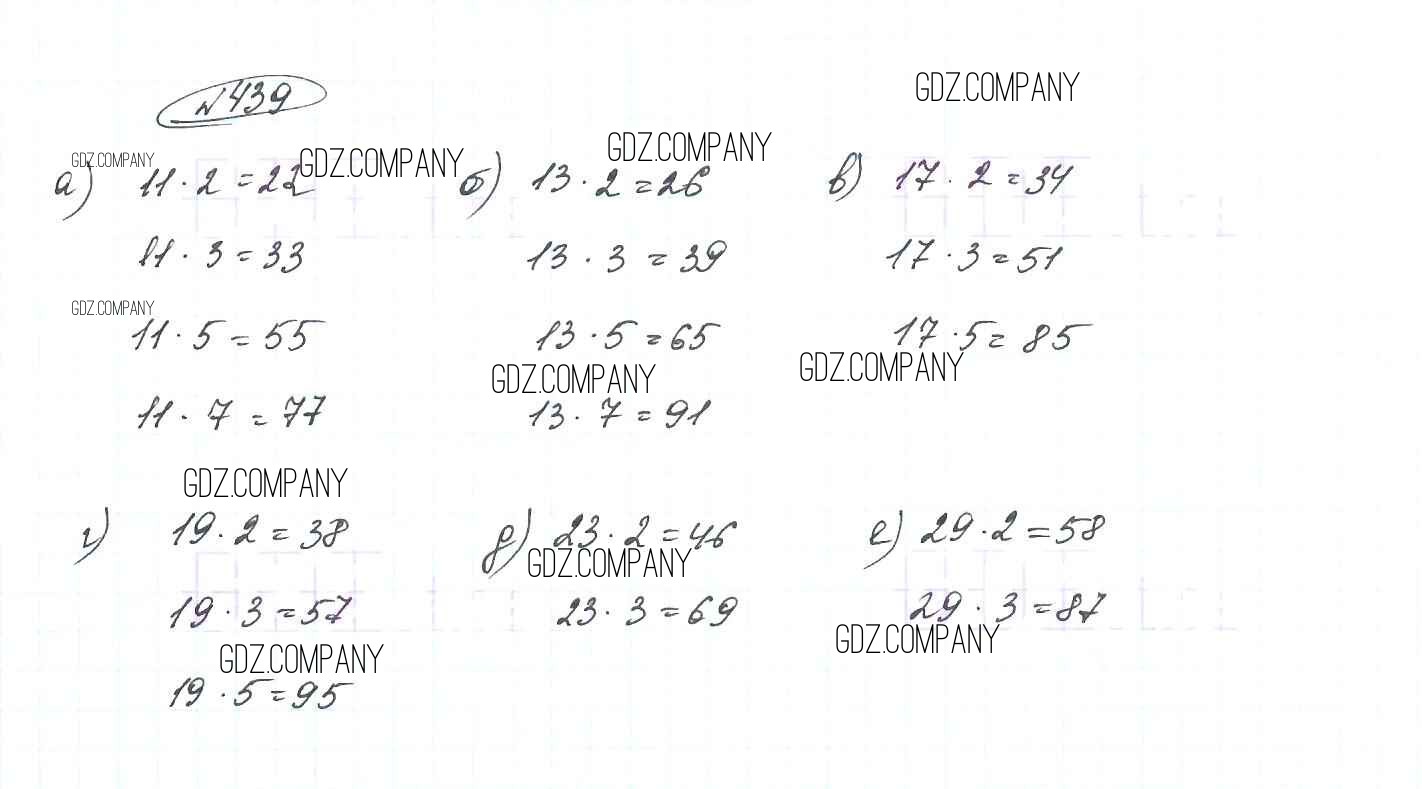 № 439
GDZ.COMPANY
GDZ.COMPANY GDZ.COMPANY GDZ.COMPANY
а) 11 · 2 = 22 б) 13 · 2 = 26 в) 17 · 2 = 34
11 · 3 = 33 13 · 3 = 39 17 · 3 = 51
GDZ.COMPANY
11 · 5 = 55 13 · 5 = 65 17 · 5 = 85
GDZ.COMPANY GDZ.COMPANY
11 · 7 = 77 13 · 7 = 91
GDZ.COMPANY
г) 19 · 2 = 38 д) 23 · 2 = 46 е) 29 · 2 = 58
GDZ.COMPANY
19 · 3 = 57 23 · 3 = 69 29 · 3 = 87
GDZ.COMPANY GDZ.COMPANY
19 · 5 = 95